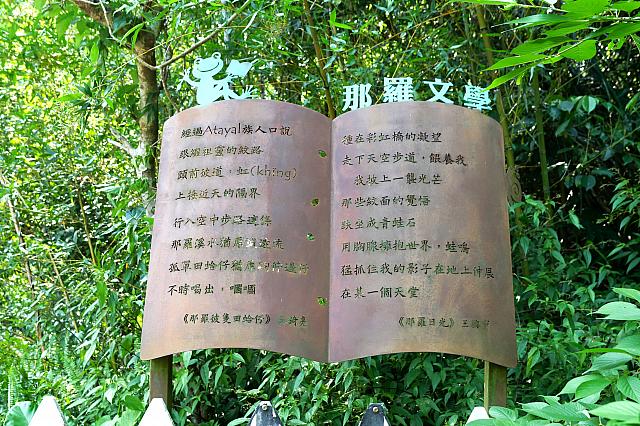 那羅文學
經過Atayal族人口說
跟綴祖靈的紋路
頭前彼道,虹(khīng)
上接近天的隔界
行入空中步
那羅溪水猶原
孤單田蛤仔猶原
不時喝出,嘓嘓
《那羅彼隻田蛤仔》
種在彩虹橋的凝望
走下天空步道,餵養我
我披上一襲光芒
那些紋面的覺悟
趺坐成青蛙石
用胸腺擁抱世界,蛙鳴
猛抓住我的影子在地上伸展
在某一個天堂
《那羅日光》王